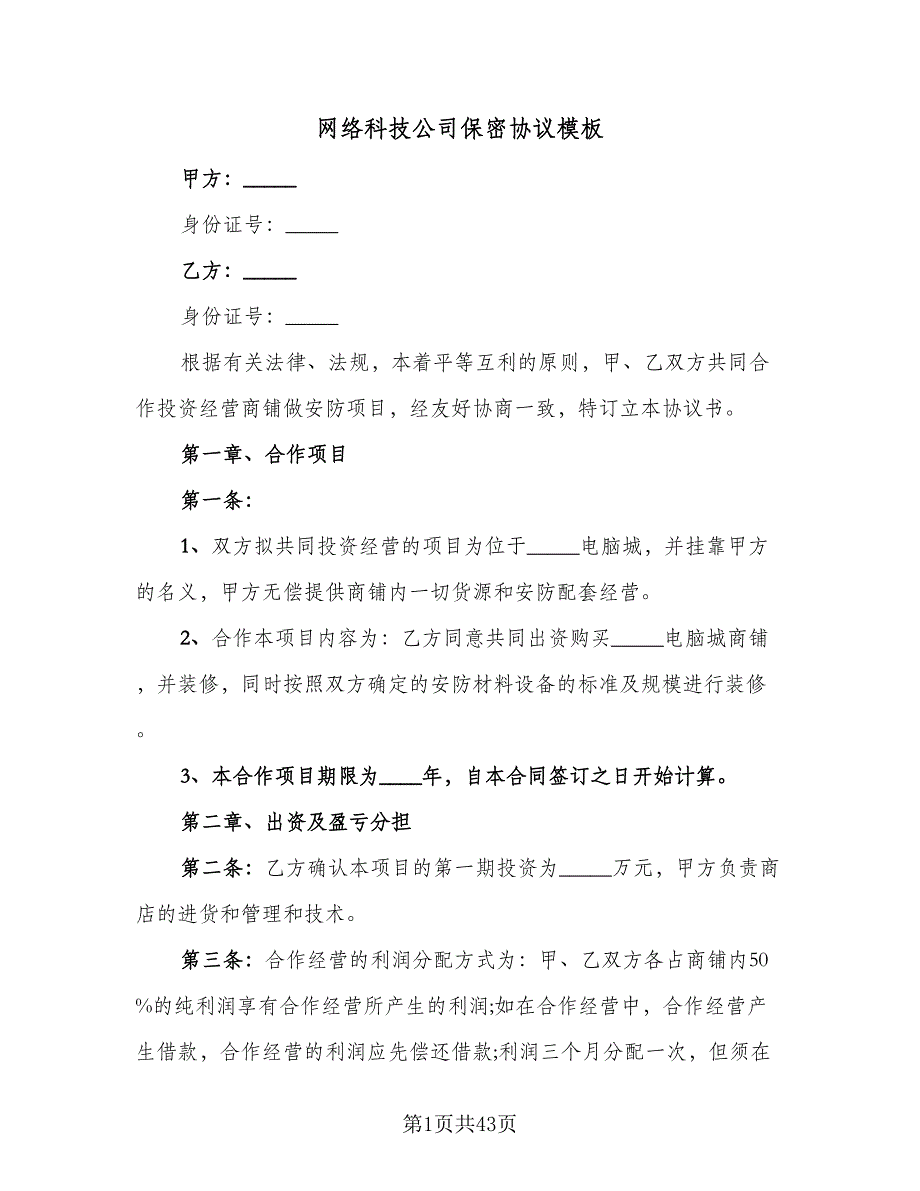 网络科技公司保密协议模板
甲方：_____
身份证号：_____
乙方：_____
身份证号：_____
根据有关法律、法规，本着平等互利的原则，甲、乙双方共同合
作投资经营商铺做安防项目，经友好协商一致，特订立本协议书。
第一章、合作项目
第一条：
1、双方拟共同投资经营的项目为位于_____电脑城，并挂靠甲方
的名义，甲方无偿提供商铺内一切货源和安防配套经营。
2、合作本项目内容为：乙方同意共同出资购买_____电脑城商铺
，并装修，同时按照双方确定的安防材料设备的标准及规模进行装修
。
3、本合作项目期限为____年，自本合同签订之日开始计算。
第二章、出资及盈亏分担
第二条：乙方确认本项目的第一期投资为_____万元，甲方负责商
店的进货和管理和技术。
第三条：合作经营的利润分配方式为：甲、乙双方各占商铺内50
%的纯利润享有合作经营所产生的利润;如在合作经营中，合作经营产
生借款，合作经营的利润应先偿还借款;利润三个月分配一次，但须在
第1页共43页